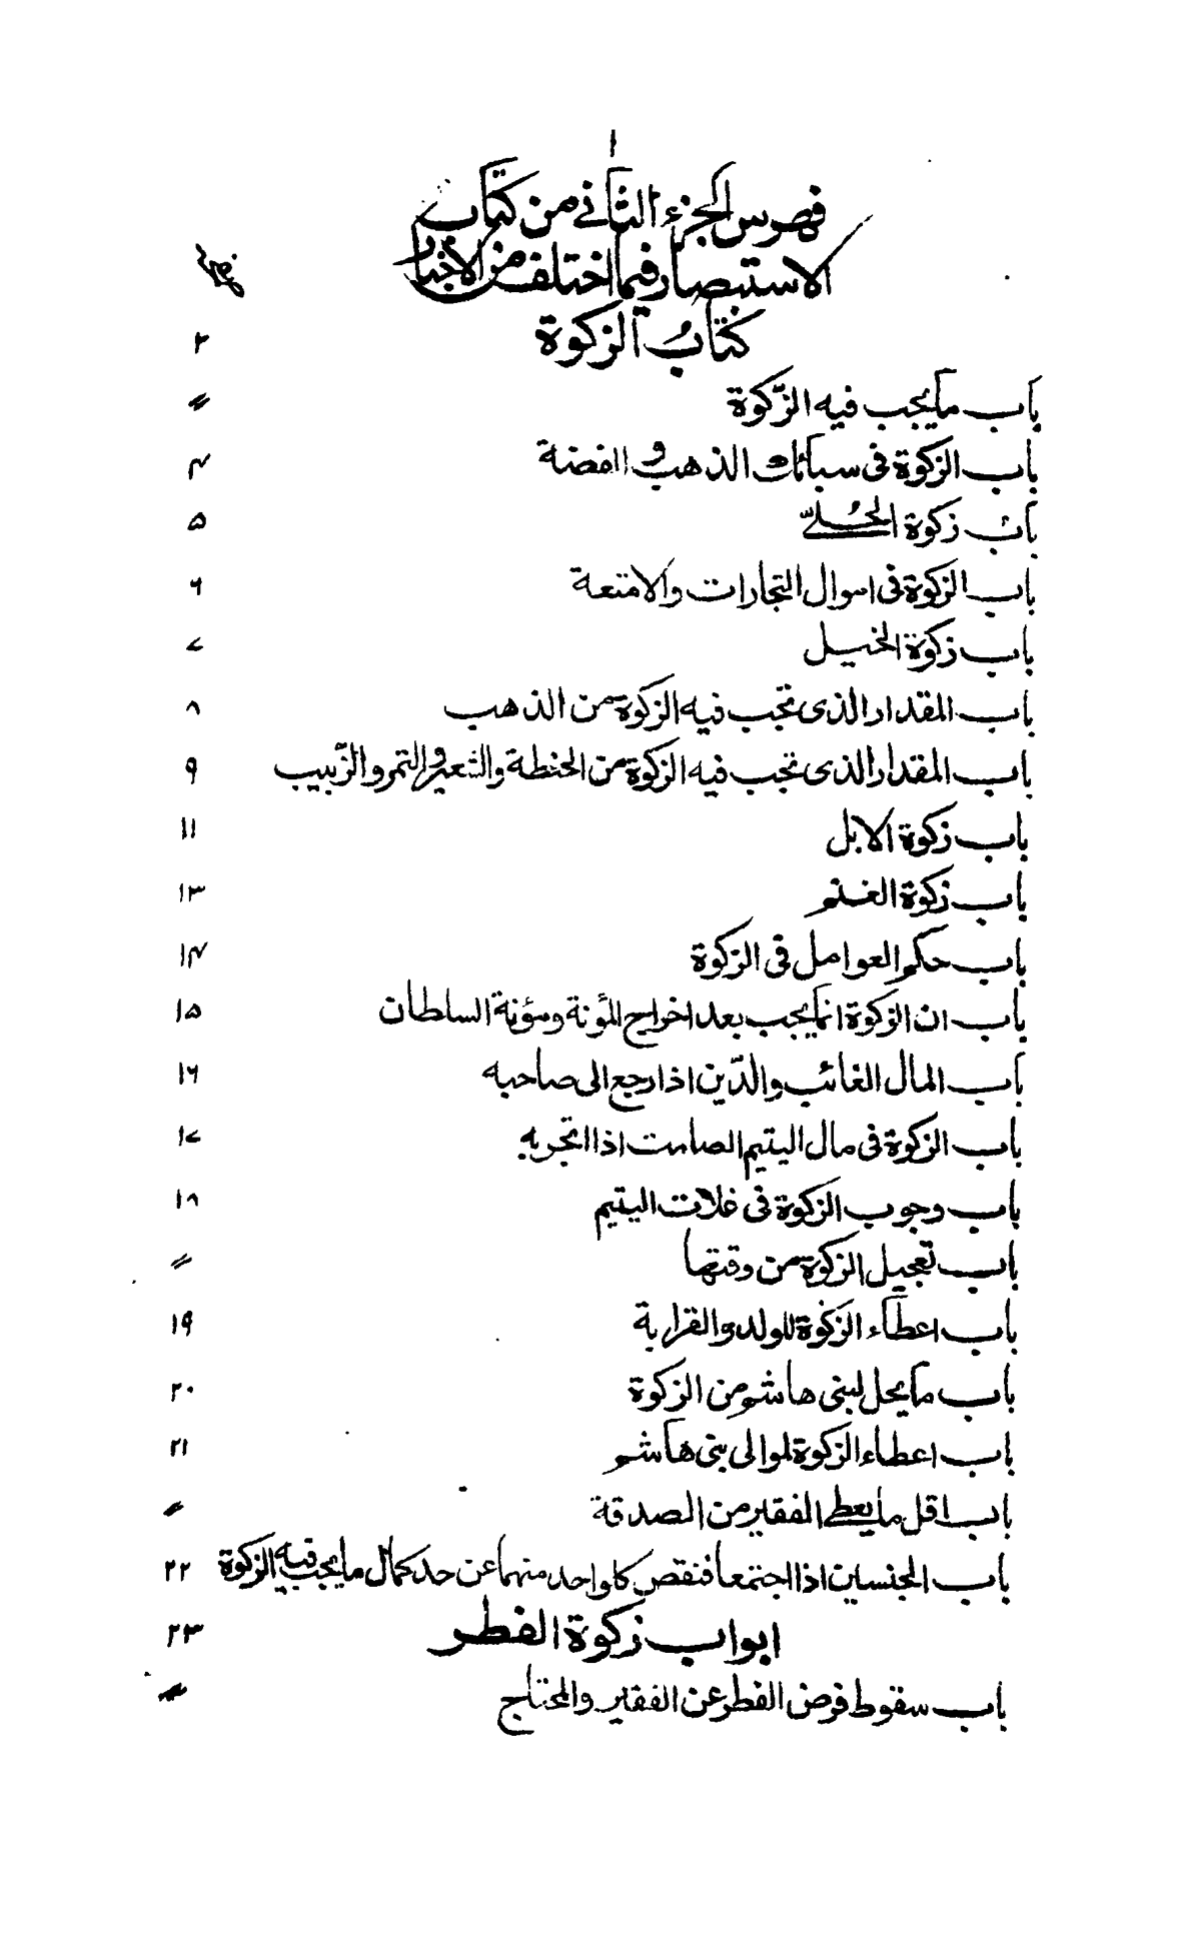 ١
فهرس الجزء الثاني من كتاب
الاستبصار فيما اختلف من الاخبار
كتاب الزكوة ٢
باب ما يجب فيه الزّكوة 〃
باب الزكوة فى سبائك الذهب و الفضة ۴
باب زكوة الحُلىّ ۵
باب الزكوة فى اموال التجارات والامتعة ۶
باب زكوة الخيل ٧
باب المقدار الذى تجب فيه الزكوة من الذهب ٨
باب المقدار الذى تجب فيه الزكوة من الحنطة والشعير و التمر و الزّبيب ٩
باب زكوة الابل ١١
باب زكوة الغنم ١٣
باب حكم العوامل فى الزكوة ١۴
باب ان الزكوة انما يجب بعد اخراج المؤنة ومؤنة السلطان ١۵
باب المال الغائب والدّين اذا رجع الى صاحبه ١۶
باب الزكوة فى مال اليتيم الصامت اذا اتجر به ١٧
باب وجوب الزكوة فى غلات اليتيم ١٨
باب تعجيل الزكوة من وقتها 〃
باب اعطاء الزكوة للولد والقرابة ١٩
باب ما يحل لبنى هاشم من الزكوة ٢٠
باب اعطاء الزكوة لموالى بنى هاشم ٢١
باب اقل ما يعطى الفقير من الصدقة 〃
باب الجنسين اذا اجتمعا فنقص كل واحد منهما عن حد كمال ما يجب فيه الزكوة ٢٢
ابواب زكوة الفطر ٢٣
باب سقوط فرض الفطر عن الفقير والمحتاج 〃